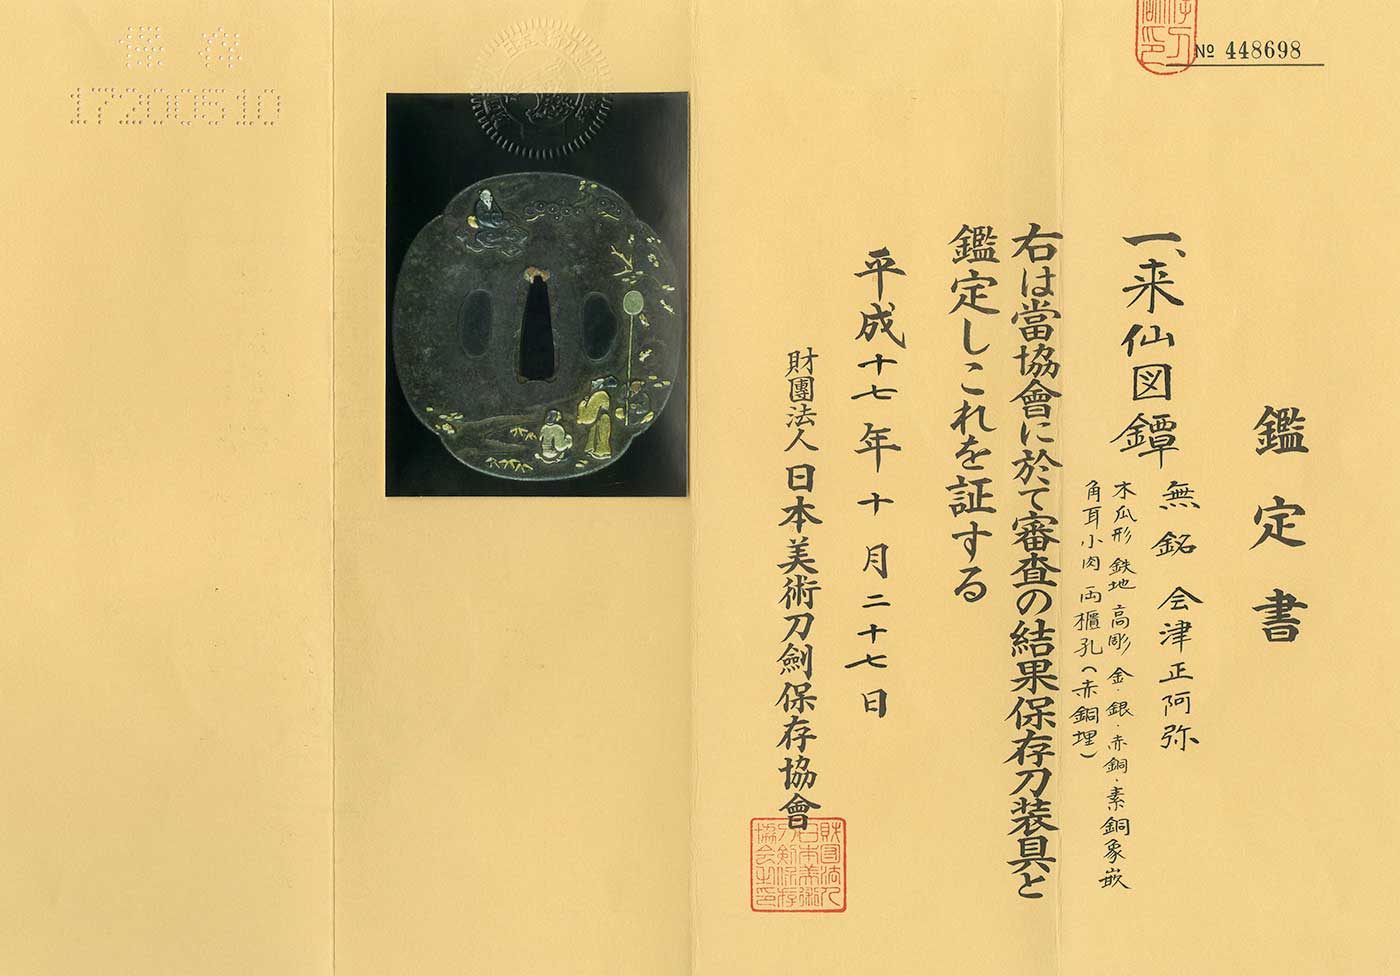 № 448698
鑑定書
一、来仙図鐔
無銘 会津正阿弥
木瓜形 鉄地 高彫 金・銀・赤銅・素銅象嵌
角耳小肉 両櫃孔(赤銅埋)
右は當協會に於て審査の結果保存刀装具と
鑑定しこれを証する
平成十七年十月二十七日
財團法人 日本美術刀劍保存協會
保存
17200510